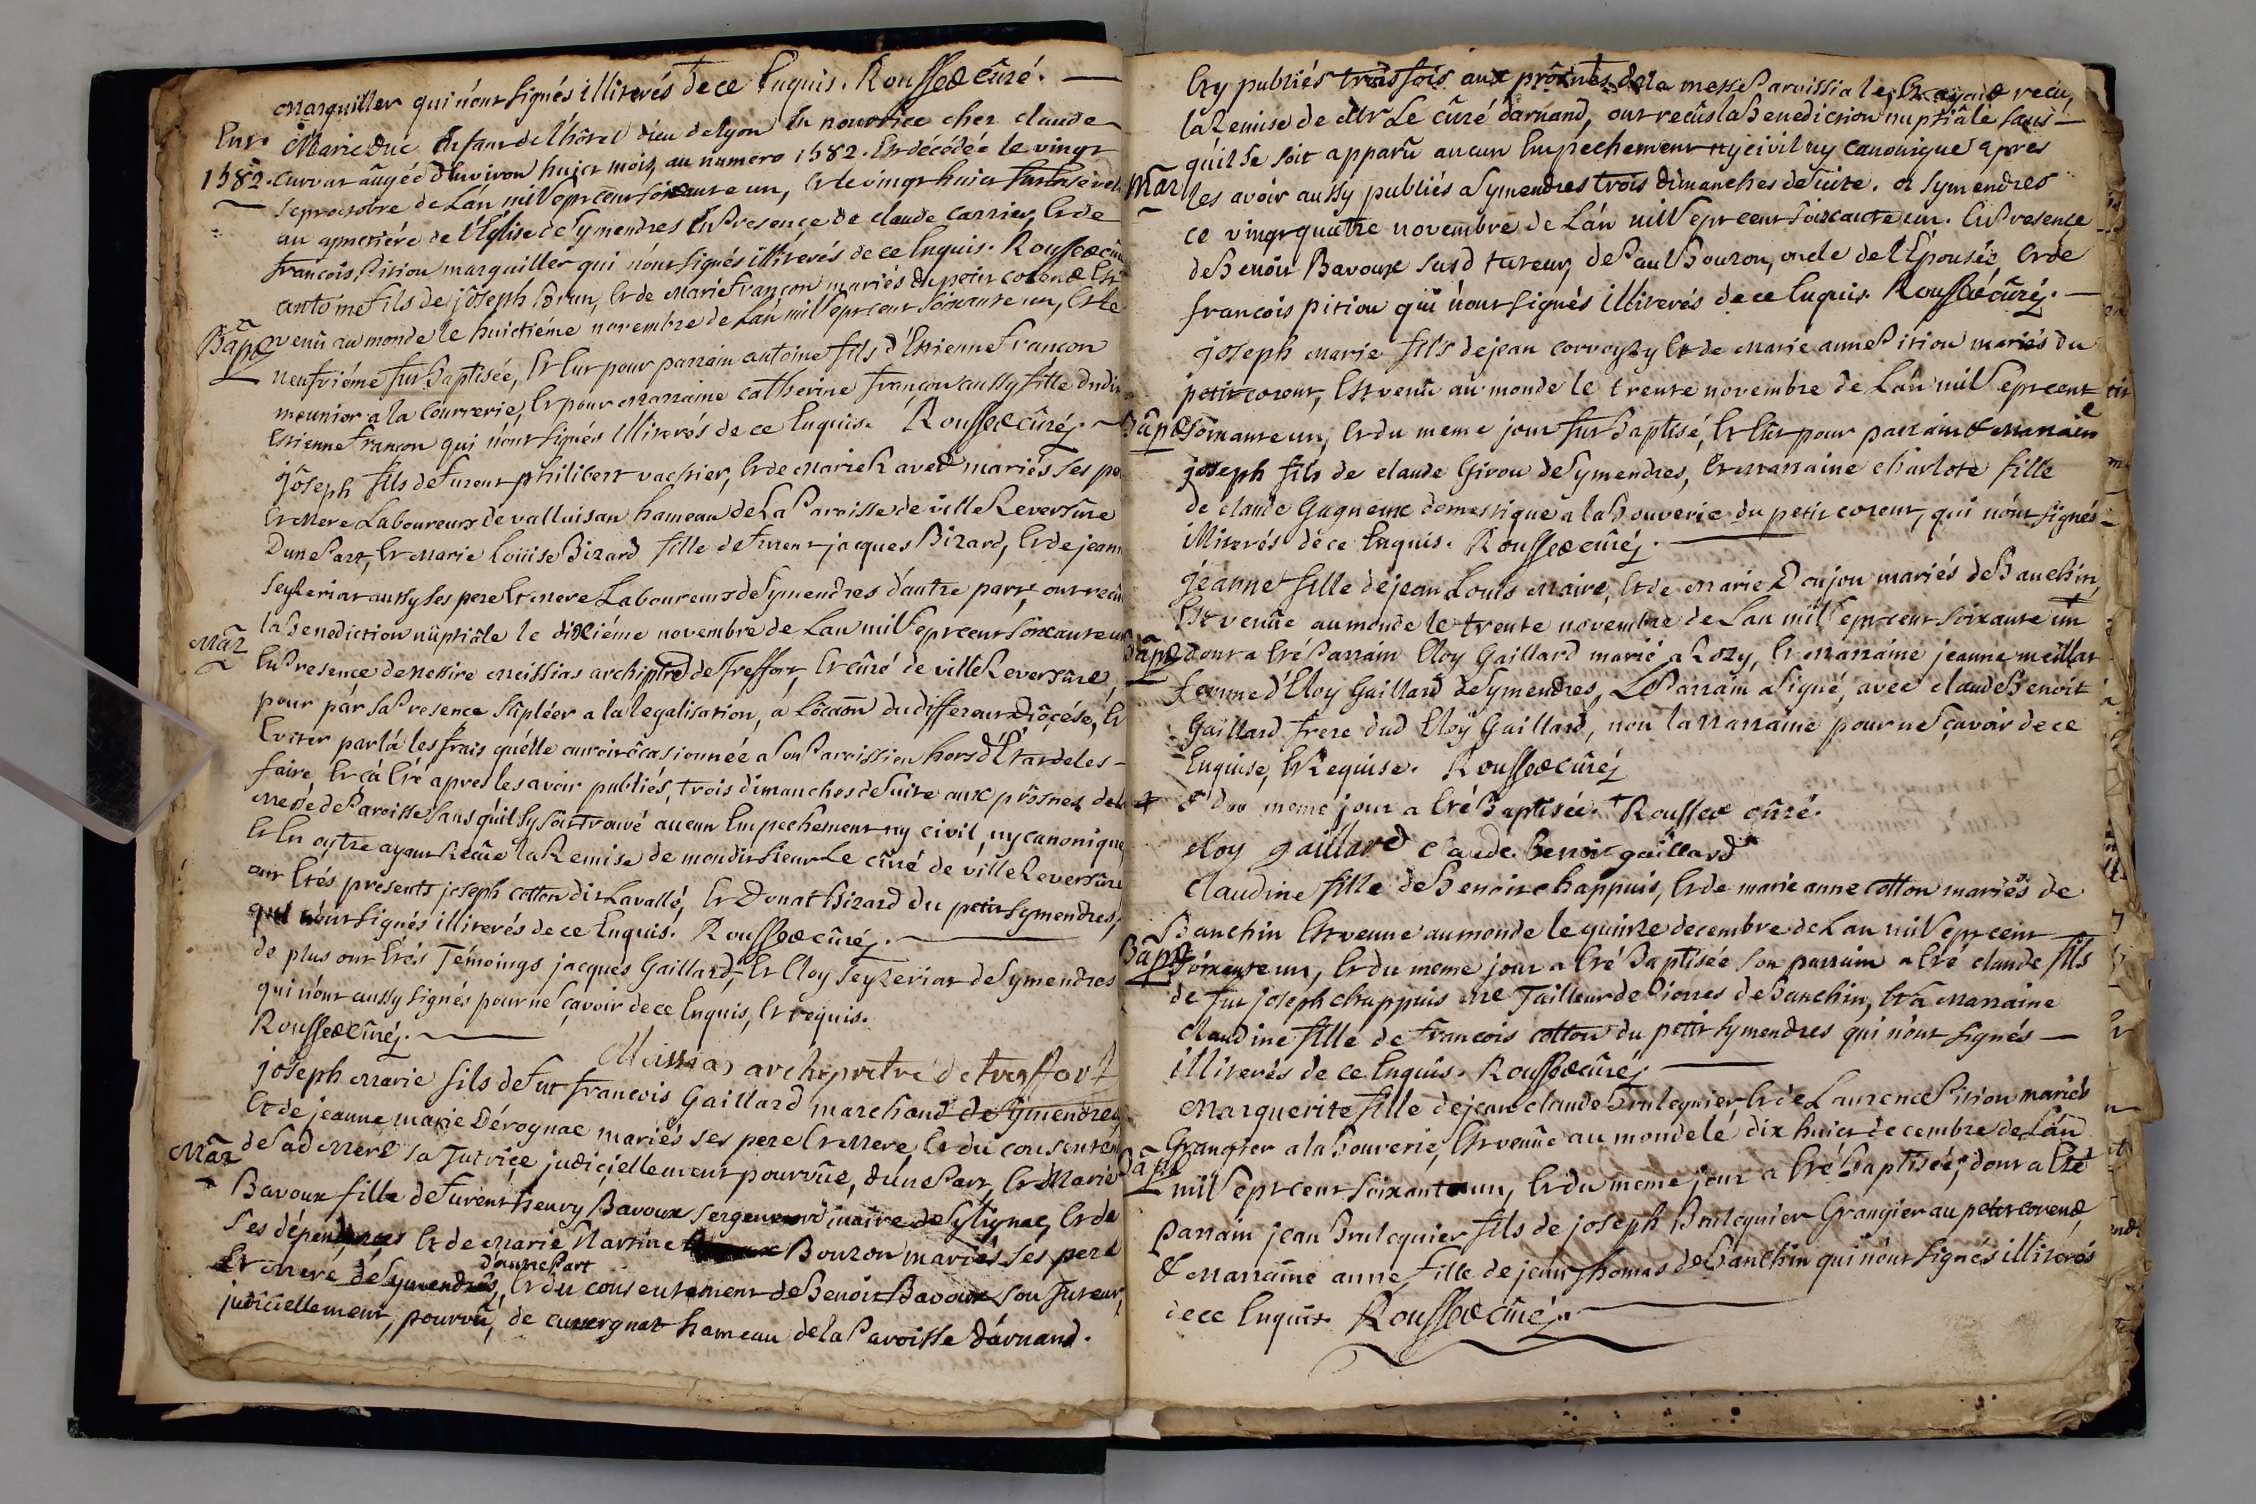 Marguiller qui n'ont signés illiterés de ce Enquis. Rousset cûré.
Ent.
1582.
Marie Duc Enfant de l'hôtel dieu de lyon En nourrice chez claude
curvat âgée d'Environ huict mois au numero 1582. Est décédée le vingt
sept octobre de L'an mil sept cent soixante un, Et le vingt huict fut Enseveli
au cymetiére de l'Eglise de Symendres En Presence de claude carrier, Et de
francois Pition marguiller qui n'ont signés illiterés de ce Enquis. Rousset cûré
Bapt
antoine fils de jôseph Brun, Et de Marie françon mariés du petit corend Est
venû au monde le huictiéme novembre de L'an mil sept cent soixante un, Et le
neufviéme fut Baptisée, Et Eut pour parrain antoine fils d'Estienne françon
meunier a la Courrerie, Et pour Marraine catherine françon aussy fille dudit
Estienne françon qui n'ont signés illiterés de ce Enquis. Rousset cûré.
Mar
jôseph fils de furent philibert vachier, Et de Marie Ravet mariés ses pere
Et Mere Laboureurs de valluisan hameau de La Paroisse de ville Reversûre
D'une Part, Et Marie Loüise Bizard fille de furent jacques Bizard, Et de jeanne
seyzeriat aussy ses pere Et Mere Laboureurs de Symendres d'autre part, ont recû
la Benediction nûptiâle le dixiéme novembre de L'an mil sept cent soixante un
En Presence de Messire Meissias archiptre de Treffort, Et cûré de ville Reversûre
pour pár sa Presence sûpléer a la legalisation, a L'ôcaõn du different Diôcése, Et
Eviter par lá les frais qu'elle auroit ôcasionnée a son Paroissien hors d'Etat de les
faire, Et çà Eté apres les avoir publiés, trois dimanches de suite aux prôsnes de la
Messe de Paroisse sans qu'il sy soit trouvé aucun Empechement ny civil, ny canonique
Et En outre ayant Recûe la Remise de mondit sieur Le cûré de ville Reversûre
ont Etés presents joseph cotton dit Lavallé, Et Donat Bizard du petit Symendres,
qui n'ont signés illiterés de ce Enquis. Rousset cûré.
de plus ont Etés Témoings jacques Gaillard, Et Eloy seyzeriat de Symendres
qui n'ont aussy signés pour ne sçavoir de ce Enquis, Et requis.
Rousset cûré.
Meissias archipretre de treffort
Mar
joseph Marie fils de fut francois Gaillard marchand de Symendres,
Et de jeanne marie Dérognac mariés ses pere Et Mere, Et du consentement
de sad Mere sa Tutrice judiciellement pourvûe, d'une Part, Et Marie
Bavoux fille de furent henry Bavoux sergent ordinaire de Sylignac, Et de
ses dépendances Et de Marie Marrine Bouzon mariés ses pere
Et Mere de Symendres, d'autre Part Et du consentement de Benoit Bavoux son Tuteur,
judiciellement, pourvû, de cuvergnat hameau de la Paroisse d'arnand.
Mar
Et y publiés trois fois aux prôsnes de la messe Paroissiale, Et ayant recû,
la Remise de Mr Le cûré darnand, ont recûs la Benediction nuptiâle sans
qu'il se soit apparû aucun Empechement ny civil ny canonique apres
les avoir aussy publiés a Symendres trois dimanches de suite. a Symendres
ce vingt quatre novembre de L'an mil sept cent soixante un. En Presence
de Benoit Bavoux susd tuteur, de Paul Bouzon, oncle de l'Epousée Et de
francois pition qui n'ont signés illiterés de ce Enquis. Rousset cûré.
Bapt
joseph Marie fils de jean corvoysy Et de Marie anne Pition mariés du
petit corent, Est venû au monde le trente novembre de L'an mil sept cent
soixante un, Et du meme jour fut Baptisé, Et Eût pour parrain & Marraine
joseph fils de claude Girou de Symendres, Et Marraine charlote fille
de claude Gagneux domestique a la Bouverie du petit corent, qui n'ont signés
illiterés de ce Enquis. Rousset cûré.
Bapt
jeanne fille de jean Louis Maire, Et de Marie Donjon mariés de Banchin,
Est venûe au monde le trente novembre de L'an mil sept cent soixante un +
dont a Eté Parrain Eloy Gaillard marié a Rozy, Et Marraine jeanne meillat
femme d'Eloy Gaillard de Symendres, Le Parrain a signé, avec claude Benoit
Gaillard frere dud Eloÿ Gaillard, non la Marraine pour ne sçavoir de ce
Enquise, Et Requise. Rousset cûré
+ & du meme jour a Eté Baptisée. + Rousset cûré.
eloy gaillard claude Benoit gaillard
Bapt
Claudine fille de Benoit chappuis, Et de marie anne cotton mariés de
Banchin Est venue au monde le quinze decembre de L'an mil sept cent
soixante un, Et du meme jour a Eté Baptisée son parrain a Eté claude fils
de fut joseph chappuis Me Tailleur de Pierres de Banchin, Et a Marraine
claudine fille de francois cotton du petit symendres qui n'ont signés
illiterés de ce Enquis. Rousset cûré
Bapt
Marguerite fille de jean claude Brulequier, Et de Laurence Pition mariés
Granger a la Bouverie, Est venûe au monde lé dix huict decembre de L'an
mil sept cent soixante un, Et du meme jour a Eté Baptisée, dont a Eté
parrain jean Brulequier fils de joseph Brulequier Grangier au petit corend,
& Marraine anne fille de jean Thomas de Banchin qui n'ont signés illiterés
de ce Enquis. Rousset cûré.